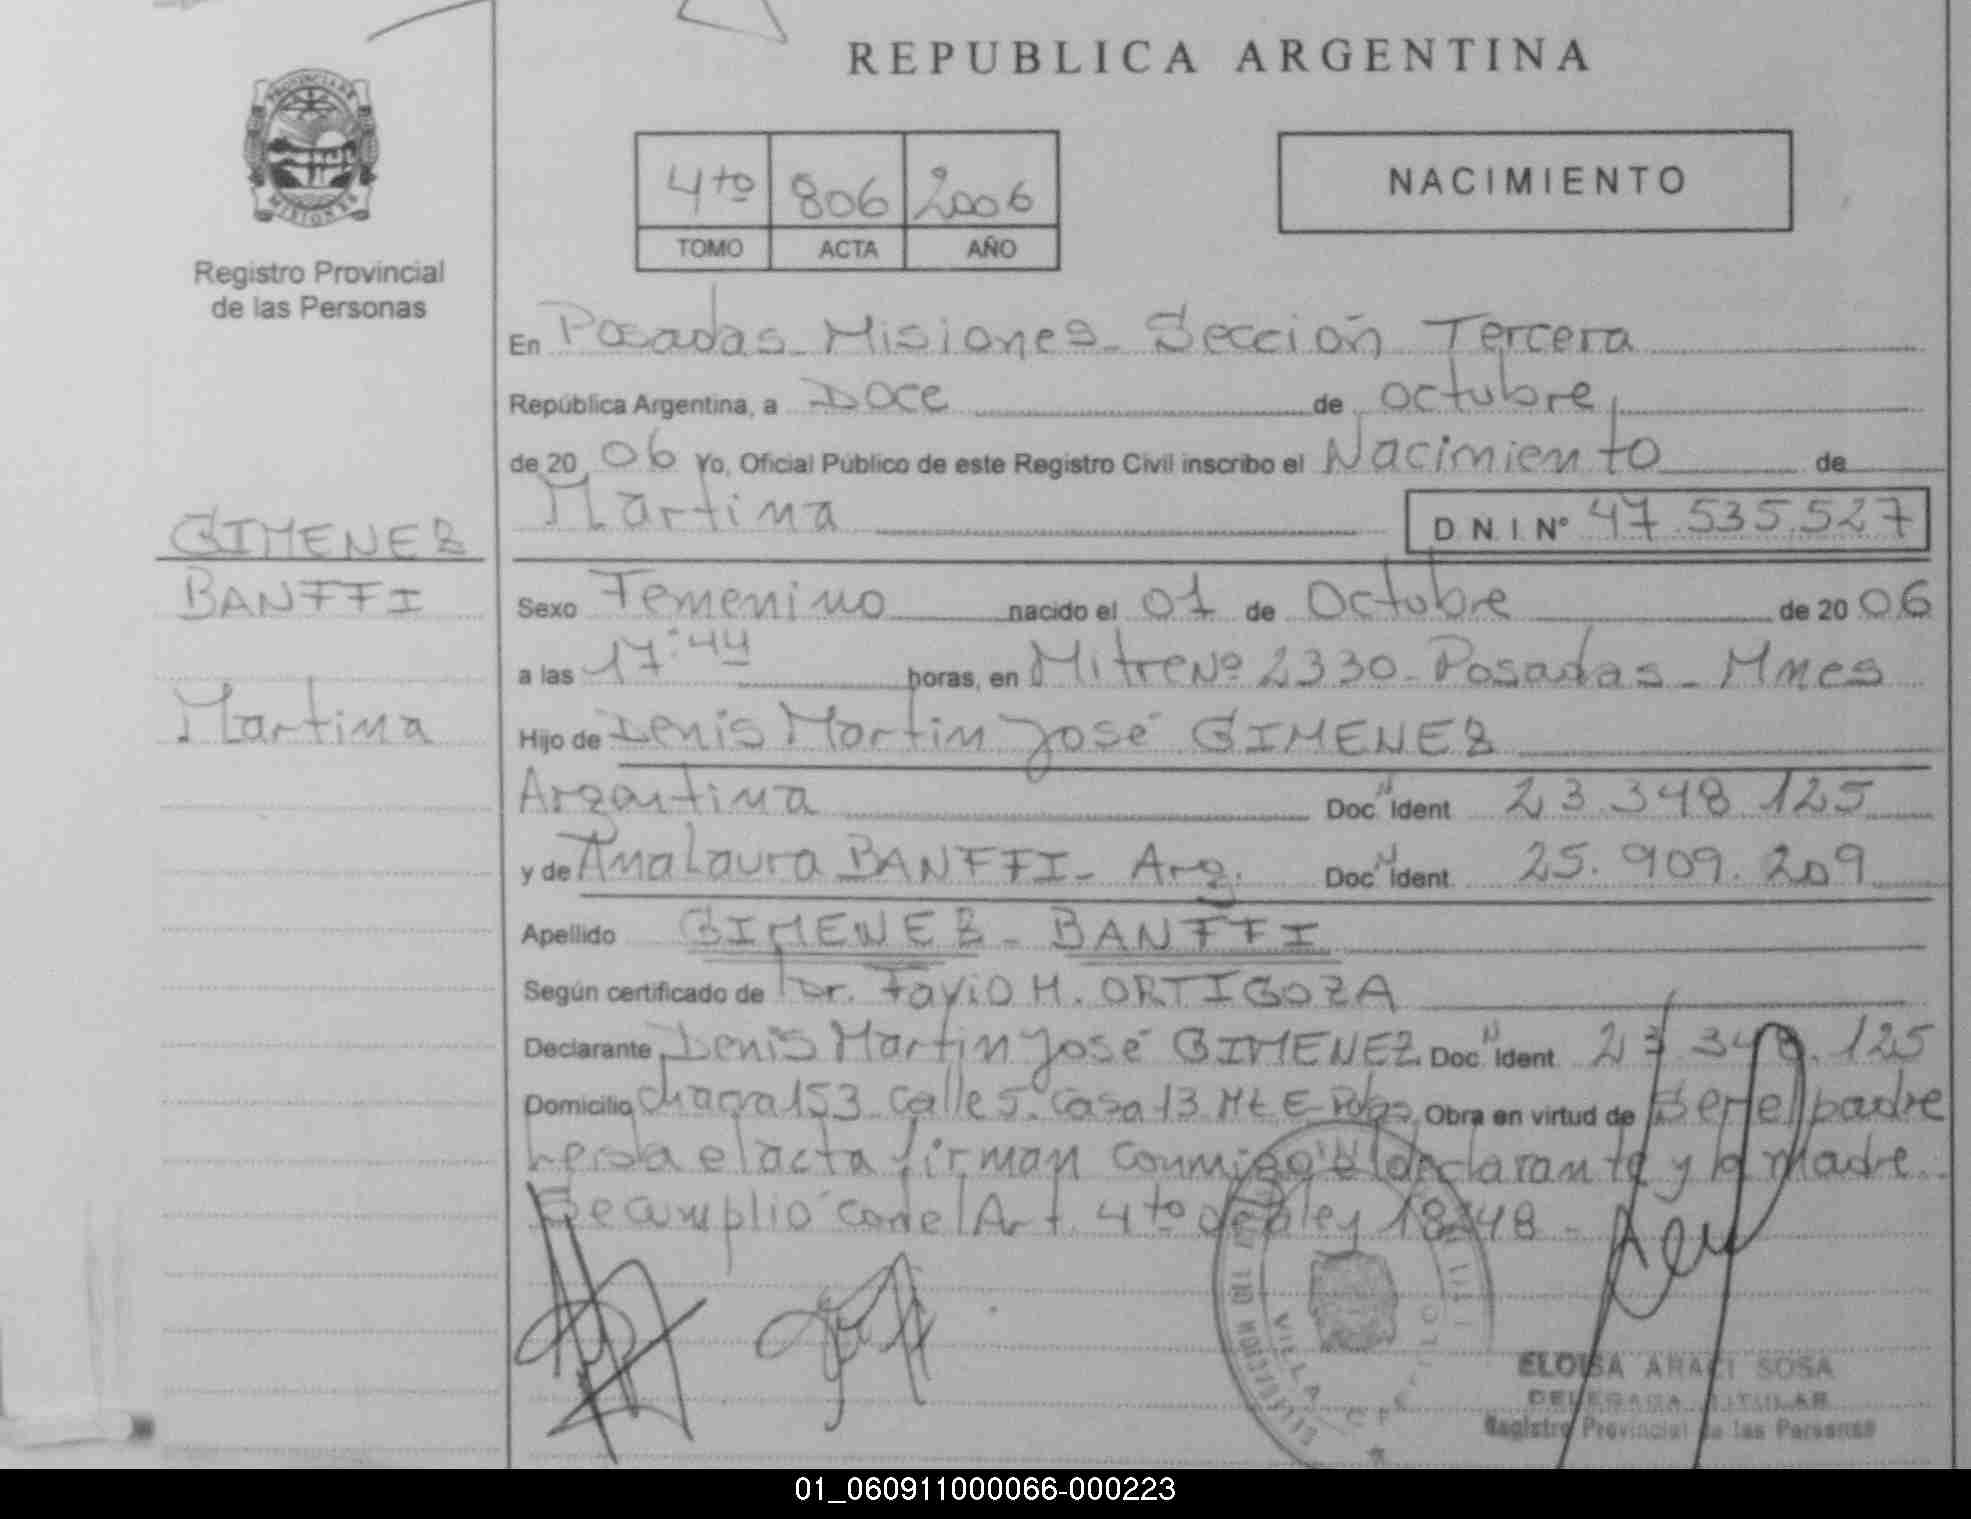 REPUBLICA ARGENTINA
4to 806 2006
TOMO ACTA AÑO
NACIMIENTO
PROVINCIA DE
MISIONES
Registro Provincial
de las Personas
GIMENEZ
BANFFI
Martina
En Posadas - Misiones - Sección Tercera
República Argentina, a Doce de octubre,
de 20 06 Yo, Oficial Público de este Registro Civil inscribo el Nacimiento de
Martina D.N.I. Nº 47.535.527
Sexo Femenino nacido el 01 de Octubre de 20 06
a las 17:44 horas, en Mitre Nº 2330 - Posadas - Mnes
Hijo de Denis Martin José GIMENEZ
Argentina Doc. Ident. 23.348.125
y de Ana Laura BANFFI - Arg. Doc. Ident. 25.909.209
Apellido GIMENEZ - BANFFI
Según certificado de Dr. Favio H. ORTIGOZA
Declarante Denis Martin José GIMENEZ Doc. Ident. 23.348.125
Domicilio chacra 153 calle 5 casa 13 Obra en virtud de Ser el padre
Leida el acta firman conmigo el declarante y la madre.
Se cumplio con el Art. 4to de ley 18248 -
VILLA
ELOISA ARACI SOSA
DELEGADA TITULAR
Registro Provincial de las Personas
01_060911000066-000223